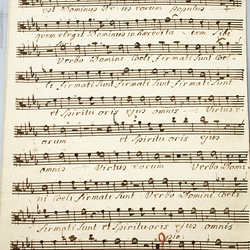 est Dominus Deus eorum populus
quem elegit Dominus in haeredita - tem sibi
Verbo Domini Coeli firmati sunt Coe-
li firmati sunt firmati sunt
et Spiritu oris ejus omnis Virtus e-
orum et Spiritu oris ejus
omnis Virtus eorum Verbo Domi-
ni coeli firmati sunt Verbo Domini coeli
firmati sunt et Spiritu oris ejus